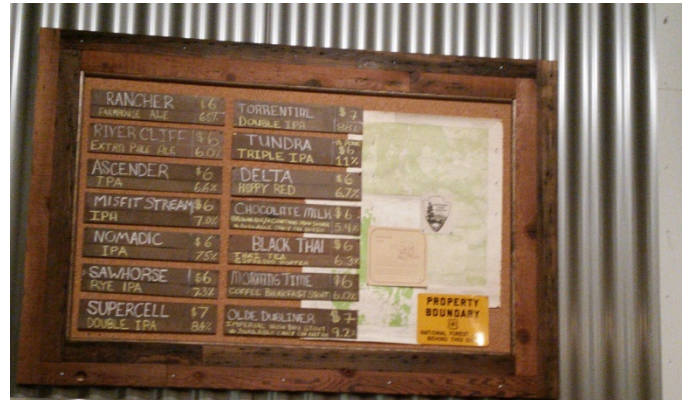 RANCHER $6
FARMHOUSE ALE 6.5%
RIVER CLIFF $6
EXTRA PALE ALE 6.0%
ASCENDER $6
IPA 6.6%
MISFIT STREAM $6
IPA 7.0%
NOMADIC $6
IPA 7.5%
SAWHORSE $6
RYE IPA 7.3%
SUPERCELL $7
DOUBLE IPA 8.6%
TORRENTIAL $7
DOUBLE IPA 8.8%
TUNDRA $6
TRIPLE IPA 11%
DELTA $6
HOPPY RED 6.7%
CHOCOLATE MILK $6
5.4%
BLACK THAI $6
THAI TEA
ESPRESSO PORTER 6.3%
MORNING TIME $6
COFFEE BREAKFAST STOUT 6.0%
OLDE DUBLINER $7
IMPERIAL IRISH DRY STOUT
9.2%
PROPERTY
BOUNDARY
NATIONAL FOREST
BEHIND THIS